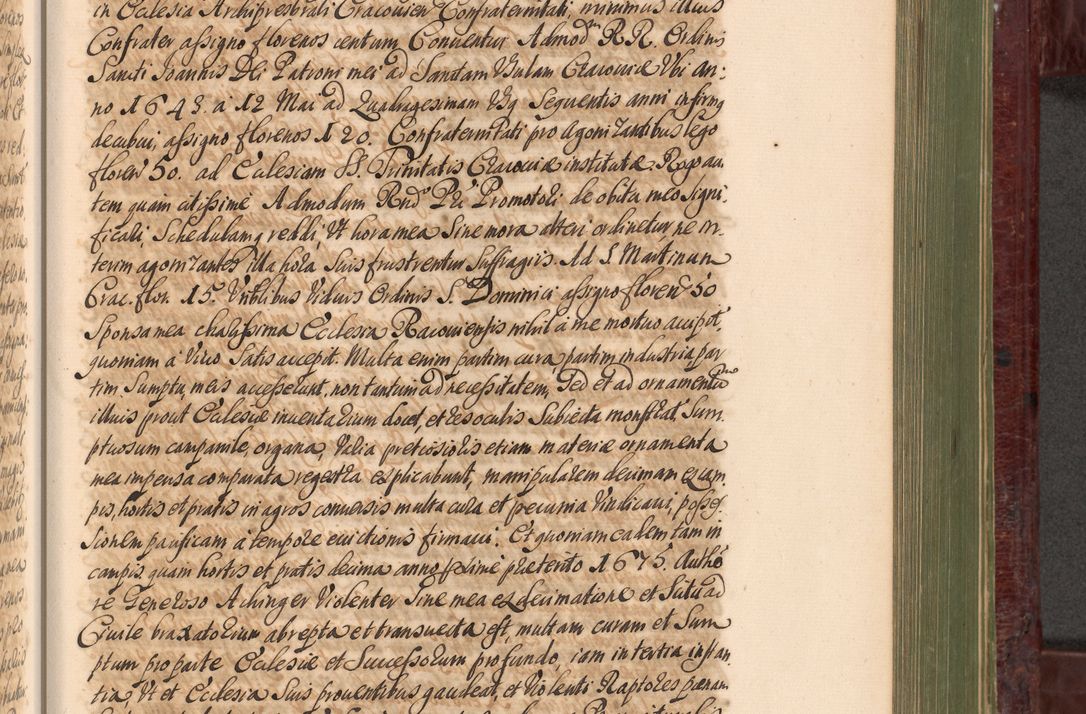 in Ecclesia Archipresbrali Cracouien Confraternitati, minimus illius
Confrater assigno florenos centum Conuentui Admod RR. Ordinis
Sancti Ioannis Dei Patroni mei ad Sanctam Vrsulam Cracouiæ Vbi An:
no 1643. a 12 Mai ad Quadragesimam Vsq Sequentis anni infirmq
decubui, assigno florenos 120. Confraternitati pro Agonizantibus lego
floren 50. ad Ecclesiam SS. Trinitatis Cracouiæ institutæ. Rogo au
tem quam citissime Admodum Rnd Pri Promotori de obitu meo signi
ficari Schedulamq reddi, Vt hora mea Sine mora alteri ordinetur ne in
terim agonizantes illa hora Suis frustrentur Suffragiis. Ad S. Martinum
Crac. flor. 15. Virtlibus Viduis Ordinis S. Dominici assigno floren 50
Sponsa mea charissima Ecclesia Racouiensis nihil a me mortuo accipit,
quoniam a Viuo Satis accepit. Multa enim partim cura, partim industria par
tim Sumptu, meis accesserunt, non tantum ad necessitatem, Sed et ad ornamentum
illius prout Ecclesiæ inuentarium docet, et res oculis Subiecta monstrat. Sum
ptuosum campanile, organa, Varia pretiosioris etiam materiæ ornamenta
mea impensa comparata regestra explicabunt, manipularem decimam ex cam
pis, hortis et pratis in agros conuersis multa cura et pecunia Vindicaui, posses
sionem pacificam a tempore euictionis firmaui. Et quoniam eadem tam in
campis quam hortis et pratis decima anno proxime præterito 1675. Autho
re Generoso Achinger Violenter Sine mea ex decimatione et Situ ad
Ciuile braxatorium abrepta et transuecta est, multam curam et Sum
ptum pro parte Ecclesiæ et Successorum profundo, iam in tertia instan
tia, Vt et Ecclesia Suis prouentibus gaudeat, et Violenti Raptores pænam